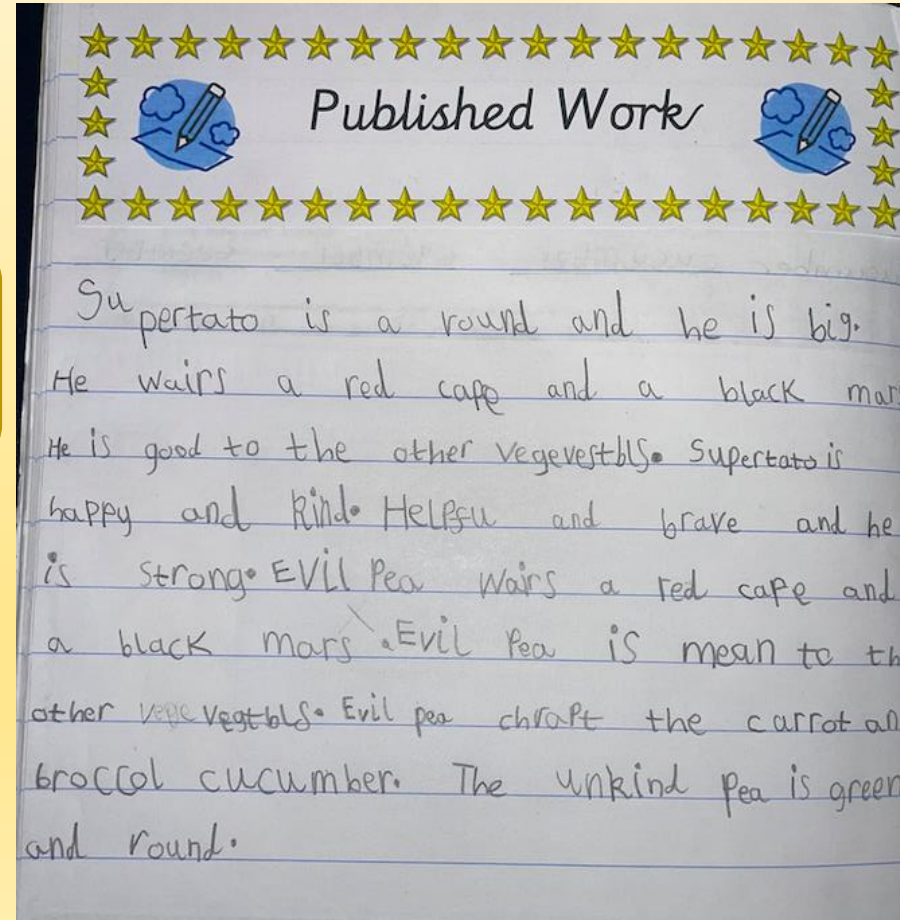 Published Work
Supertato is a round and he is big.
He wairs a red cape and a black mars
He is good to the other vegevestbls. Supertato is
happy and kind. Helpfu and brave and he
is strong. EVil Pea wairs a red cape and
a black mars. Evil Pea is mean to th
other vege vegtbls. Evil pea chrapt the carrot an
broccol cucumber. The unkind Pea is green
and round.